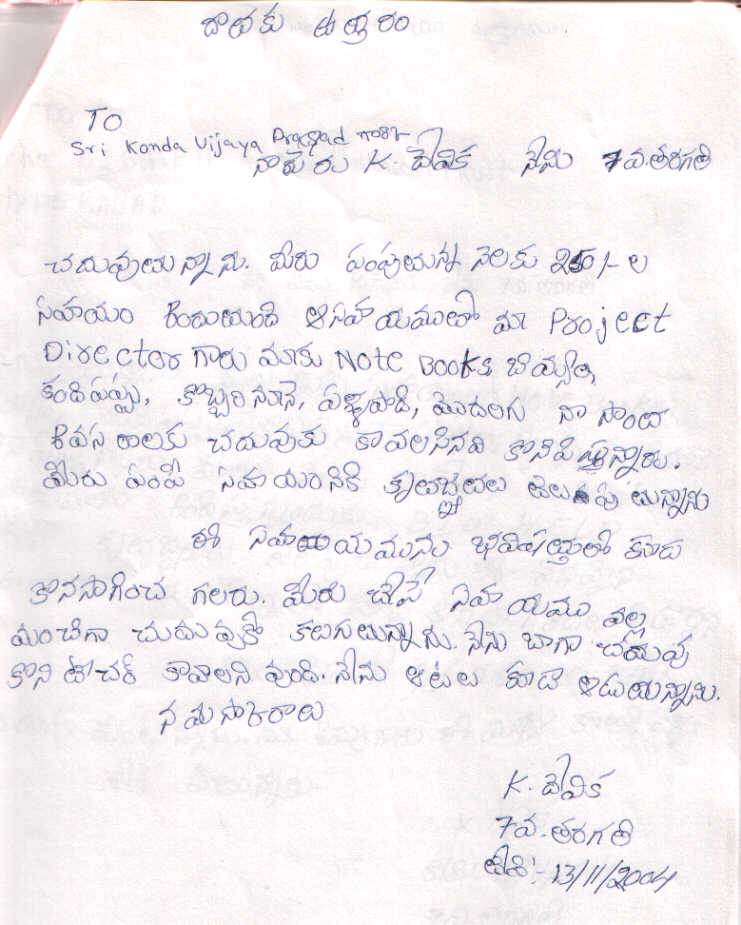 దాతకు ఉత్తరం
TO
Sri Konda Vijaya Prasad గారికి
నా పేరు K. దేవిక నేను 7వ.తరగతి
చదువుతున్నాను. మీరు పంపుతున్న నెలకు 250/- ల
సహయం అందుతుంది ఆ సహయముతో మా Project
Director గారు మాకు Note Books బియ్యం,
కందిపప్పు, కొబ్బరి నూనె, పళ్ళపొడి, మొదలగు నా సొంత
అవసరాలకు చదువుకు కావలసినవి కొనిపిస్తున్నారు.
మీరు పంపే సహయంనికి కృతజ్ఞతలు తెలుపు తున్నాను
ఈ సహయమును భవిషత్తులో కూడ
కొనసాగించ గలరు. మీరు చేసే సహయము వల్ల
మంచిగా చదువుకో కలుగుతున్నాను. నేను బాగా చదువు
కొని టీచర్ కావాలని వుంది. నేను ఆటలు కూడా ఆడుతున్నాను.
నమస్కారాలు
K. దేవిక
7వ. తరగతి
తేది:- 13/11/2004